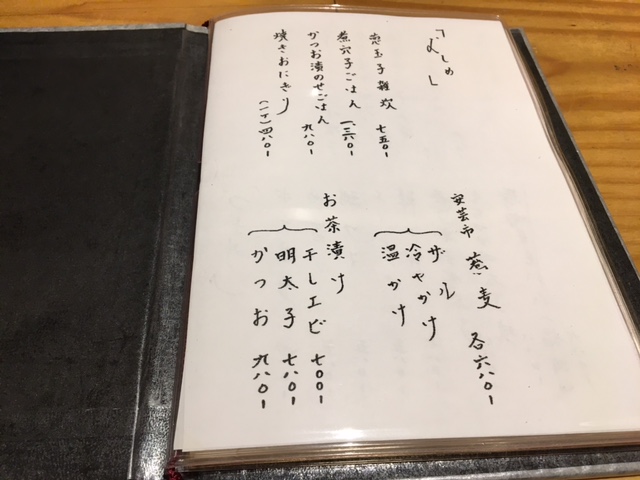 葱玉子雑炊 七五〇-
煮穴子ごはん 一、三六〇-
かつお漬のせごはん 九八〇-
焼きおにぎり (一ケ) 四八〇-
安芸市 蕎麦 各六八〇-
ザル
冷やかけ
温かけ
お茶漬け
干しエビ 七〇〇-
明太子 七八〇-
かつお 九八〇-